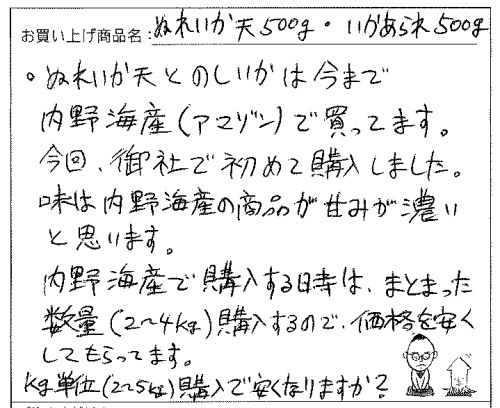 お買い上げ商品名:ぬれいか天500g・いかあられ500g
。ぬれいか天とのしいかは今まで
内野海産(アマゾン)で買ってます。
今回、御社で初めて購入しました。
味は内野海産の商品が甘みが濃い
と思います。
内野海産で購入する時は、まとまった
数量(2〜4kg)購入するので、価格を安く
してもらってます。
kg単位(2〜5kg)購入で安くなりますか?